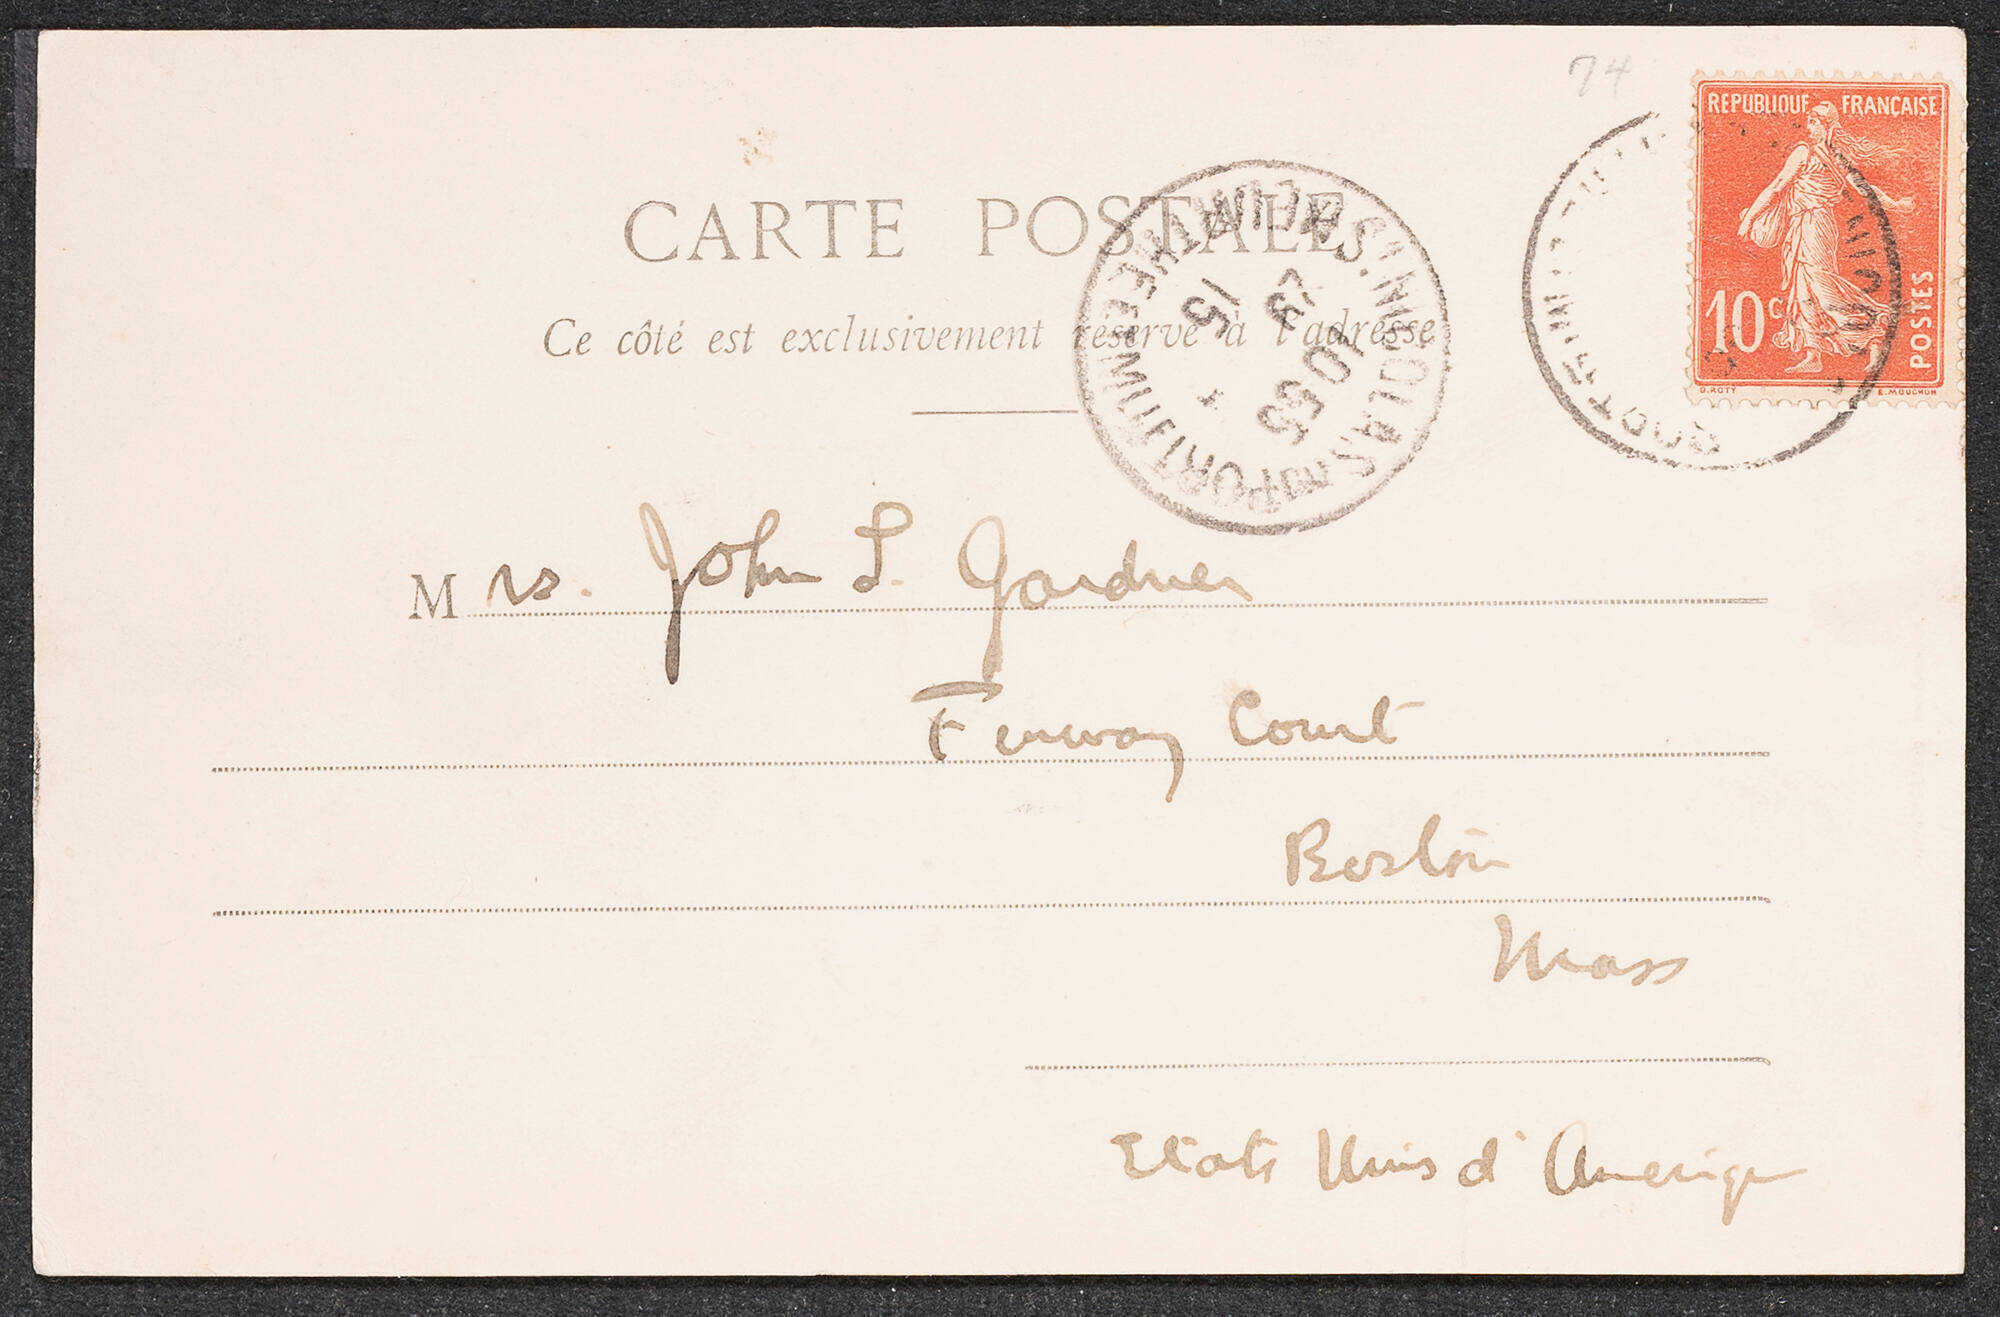 74
REPUBLIQUE FRANÇAISE
10c
POSTES
O. ROTY E. MOUCHON
CARTE POSTALE
Ce côté est exclusivement réservé à l'adresse
15
29
10 55
Mrs. John L. Gardner
Fenway Court
Boston
Mass
Etats Unis d'Amerique